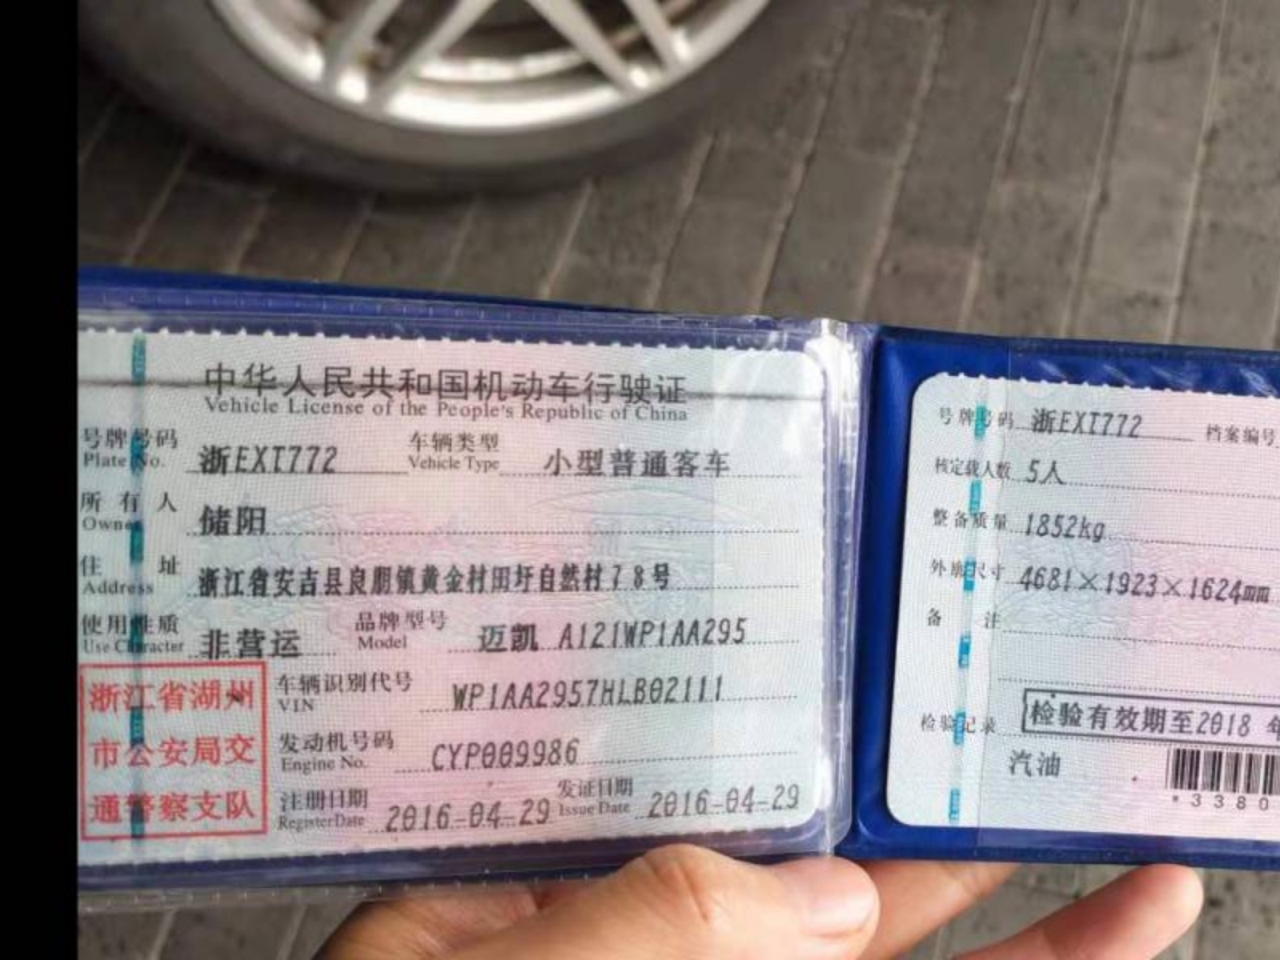 中华人民共和国机动车行驶证
Vehicle License of the People's Republic of China
号牌号码 浙EXT772 车辆类型 小型普通客车
Plate No. Vehicle Type
所有人 储阳
Owner
住址 浙江省安吉县良朋镇黄金村田圩自然村78号
Address
使用性质 非营运 品牌型号 迈凯 A121WP1AA295
Use Character Model
浙江省湖州
市公安局交
通警察支队
车辆识别代号 WP1AA2957HLB02111
VIN
发动机号码 CYP009986
Engine No.
注册日期 2016-04-29 发证日期 2016-04-29
Register Date Issue Date
号牌号码 浙EXT772 档案编号
核定载人数 5人
整备质量 1852kg
外廓尺寸 4681×1923×1624mm
备注
检验记录 检验有效期至2018 年
汽油
*3380